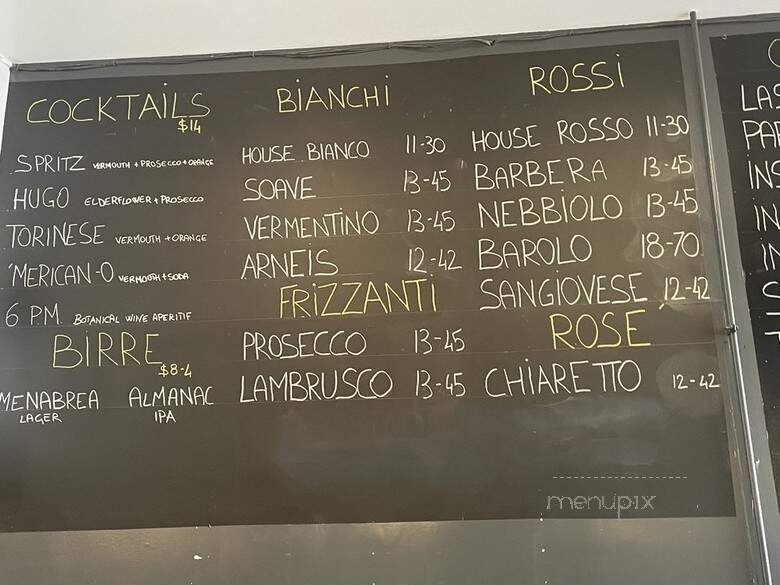 COCKTAILS
$14
SPRITZ VERMOUTH + PROSECCO + ORANGE
HUGO ELDERFLOWER + PROSECCO
TORINESE VERMOUTH + ORANGE
'MERICAN-O VERMOUTH + SODA
6 PM BOTANICAL WINE APERITIF
BIRRE
$8-4
MENABREA ALMANAC
LAGER IPA
BIANCHI
HOUSE BIANCO 11-30
SOAVE 13-45
VERMENTINO 13-45
ARNEIS 12-42
FRIZZANTI
PROSECCO 13-45
LAMBRUSCO 13-45
ROSSI
HOUSE ROSSO 11-30
BARBERA 13-45
NEBBIOLO 13-45
BAROLO 18-70
SANGIOVESE 12-42
ROSE
CHIARETTO 12-42
menupix